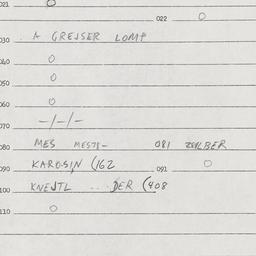 021 O
022 O
030 A GREJSER LOMP
040 O
050 O
060 O
070 -/-/-
080 MES 081 ZEILBER
090 KAROSIN (162 091 O
100 KNEJTL ... DER (408
110 O